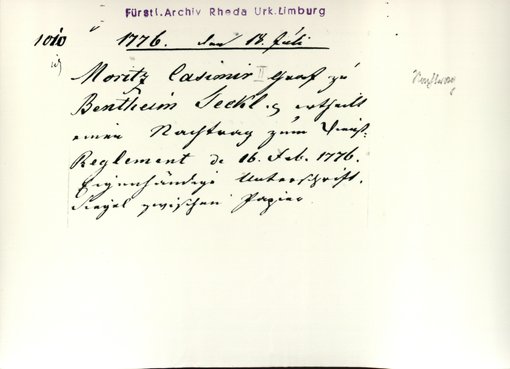 Fürstl. Archiv Rheda Urk. Limburg
1010 1776. den 18. Juli
Moritz Casimir II Graf zu
Bentheim Teckl. ertheilt
einen Nachtrag zum Dienst-
Reglement de 16. Feb. 1776.
Eigenhändige Unterschrift.
Siegel zwischen Papier.